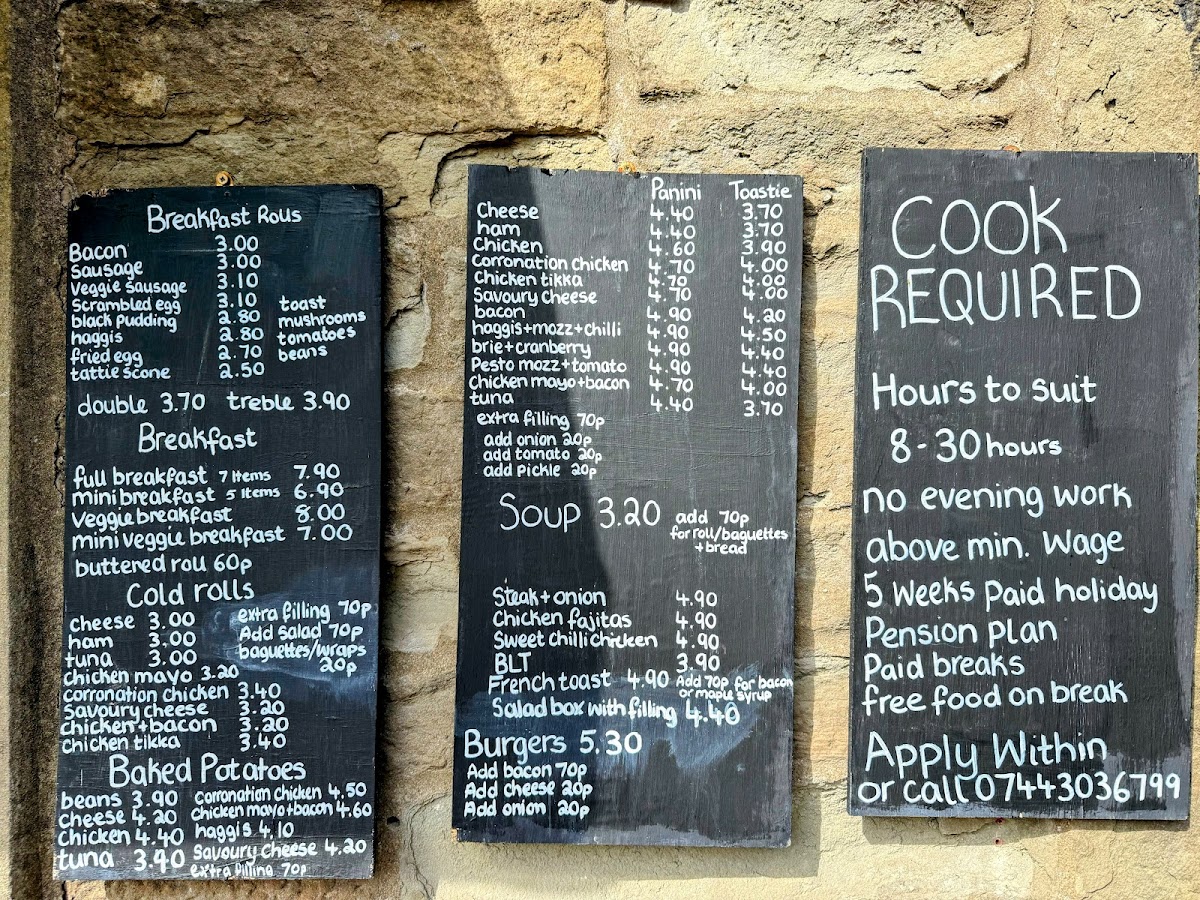 Breakfast Rolls
Bacon 3.00
Sausage 3.00
Veggie Sausage 3.10
Scrambled egg 3.10 toast
black pudding 2.80 mushrooms
haggis 2.80 tomatoes
fried egg 2.70 beans
tattie scone 2.50
double 3.70 treble 3.90
Breakfast
full breakfast 7 Items 7.90
mini breakfast 5 Items 6.90
Veggie breakfast 8.00
mini veggie breakfast 7.00
buttered roll 60p
Cold rolls
cheese 3.00 extra filling 70p
ham 3.00 Add salad 70p
tuna 3.00 baguettes/wraps
chicken mayo 3.20 20p
corronation chicken 3.40
Savoury cheese 3.20
chicken+bacon 3.20
chicken tikka 3.40
Baked Potatoes
beans 3.90 corronation chicken 4.50
cheese 4.20 chicken mayo+bacon 4.60
Chicken 4.40 haggis 4.10
tuna 3.90 Savoury cheese 4.20
extra filling 70p
Panini Toastie
Cheese 4.40 3.70
ham 4.40 3.70
Chicken 4.60 3.90
Corronation chicken 4.70 4.00
Chicken tikka 4.70 4.00
Savoury cheese 4.70 4.00
bacon 4.90 4.20
haggis+mozz+chilli 4.90 4.50
brie+cranberry 4.90 4.40
Pesto mozz+tomato 4.90 4.40
Chicken mayo+bacon 4.70 4.00
tuna 4.40 3.70
extra filling 70p
add onion 20p
add tomato 20p
add pickle 20p
Soup 3.20 add 70p
for roll/baguettes
+bread
Steak+onion 4.90
Chicken fajitas 4.90
Sweet chilli chicken 4.90
BLT 3.90
French toast 4.90 Add 70p for bacon
or maple syrup
Salad box with filling 4.40
Burgers 5.30
Add bacon 70p
Add cheese 20p
Add onion 20p
COOK
REQUIRED
Hours to suit
8-30 hours
no evening work
above min. Wage
5 Weeks Paid holiday
Pension plan
Paid breaks
free food on break
Apply Within
or call 07443036799